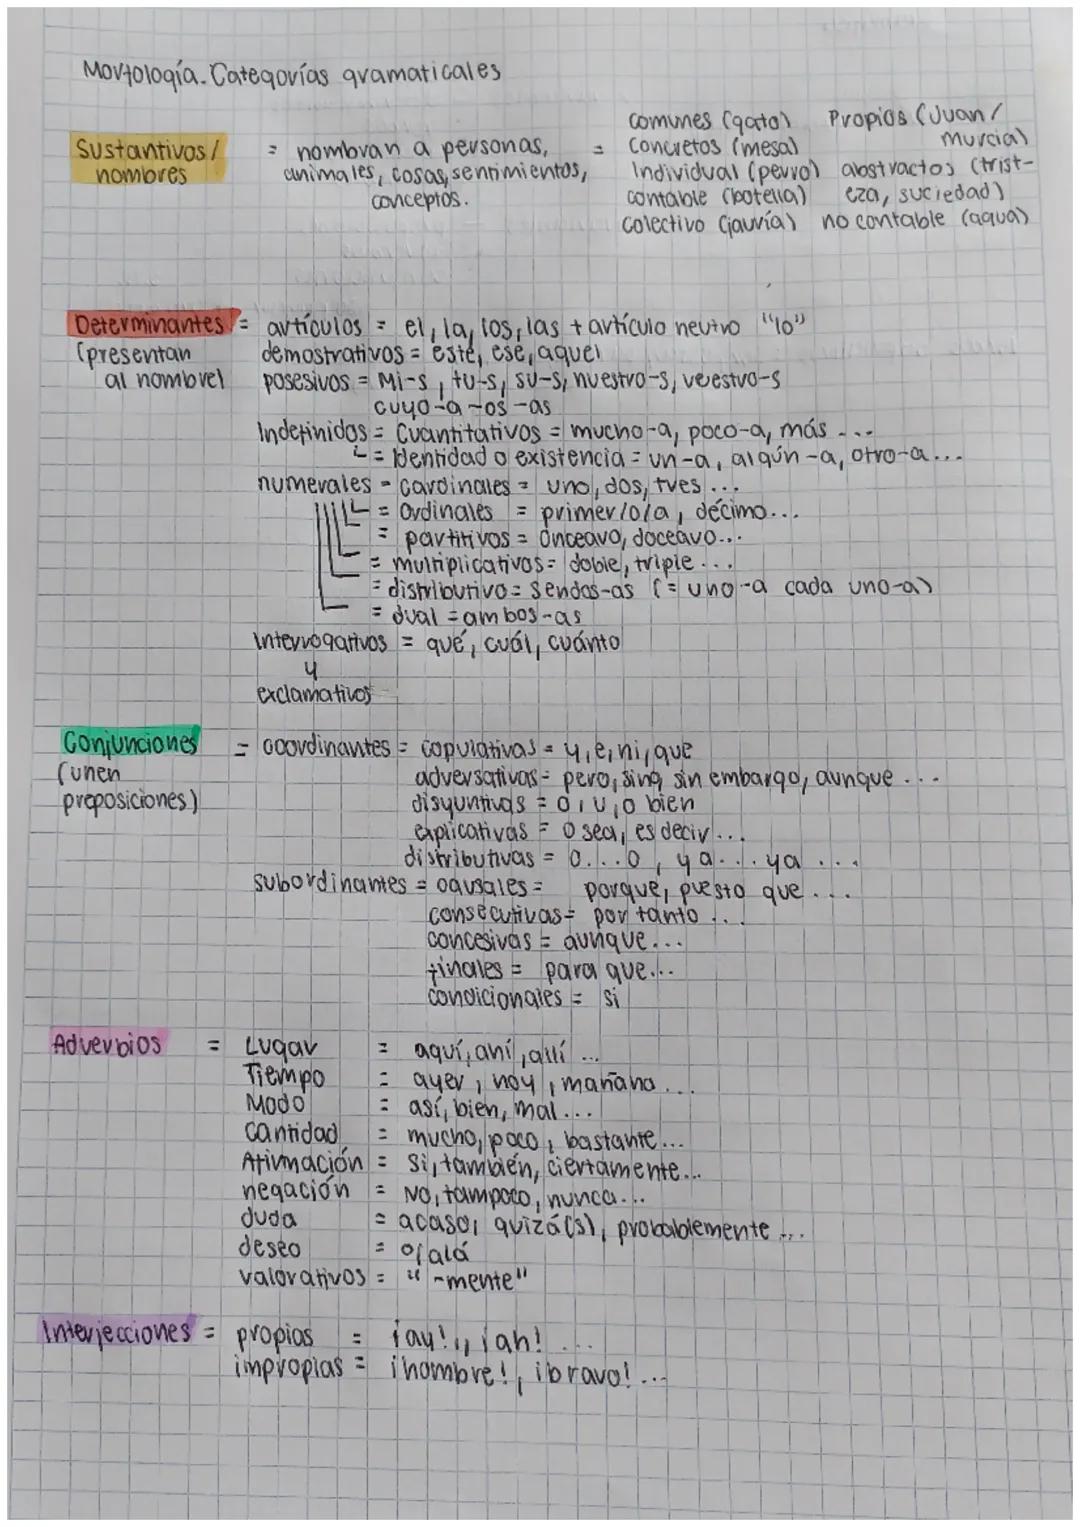 Morfología. Categorías gramaticales
Sustantivos / nombres = nombran a personas, animales, cosas, sentimientos, conceptos. =
comunes (gato) Propios (Juan / murcia)
Concretos (mesa)
Individual (perro) abstractos (tristeza, suciedad)
contable (botella)
colectivo (jauría) no contable (agua)
Determinantes = artículos = el, la, los, las + artículo neutro "lo"
(presentan al nombre) demostrativos = este, ese, aquel
posesivos = Mi-s, tu-s, su-s, nuestro-s, veestro-s
cuyo-a-os-as
Indefinidos = Cuantitativos = mucho-a, poco-a, más ...
= Identidad o existencia = un-a, algún-a, otro-a...
numerales - cardinales = uno, dos, tres ...
= Ordinales = primer/o/a, décimo...
= partitivos = Onceavo, doceavo...
= multiplicativos = doble, triple ...
= distributivo = Sendos-as (= uno-a cada uno-a)
= dual = ambos-as
Interrogativos = qué, cuál, cuánto
y
exclamativos
Conjunciones = coordinantes = copulativas = y, e, ni, que
(unen preposiciones) adversativas = pero, sino, sin embargo, aunque ...
disyuntivas = o, u, o bien
explicativas = o sea, es decir ...
distributivas = o...o, ya...ya ...
subordinantes = causales = porque, puesto que ...
consecutivas = por tanto ...
concesivas = aunque...
finales = para que...
condicionales = si
Adverbios = Lugar = aquí, ahí, allí ...
Tiempo = ayer, hoy, mañana ...
Modo = así, bien, mal ...
cantidad = mucho, poco, bastante...
Afirmación = Si, también, ciertamente...
negación = No, tampoco, nunca...
duda = acaso, quizá(s), probablemente ...
deseo = ojalá
valorativos = "-mente"
Interjecciones = propias = ¡ay!, ¡ah! ...
impropias = ¡hombre!, ¡bravo! ...